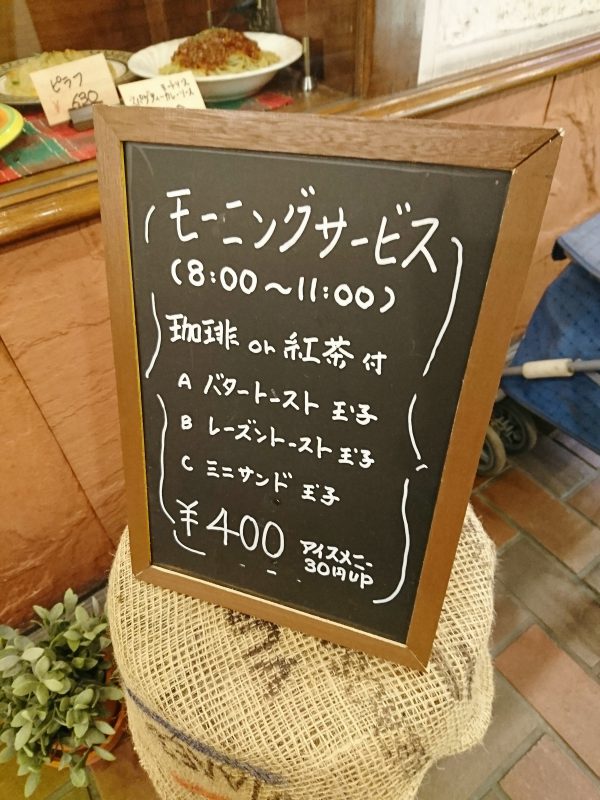 ピラフ
¥630
モーニングサービス
(8:00〜11:00)
珈琲 or 紅茶 付
A バタートースト 玉子
B レーズントースト 玉子
C ミニサンド 玉子
¥400
アイスメニー
30円UP